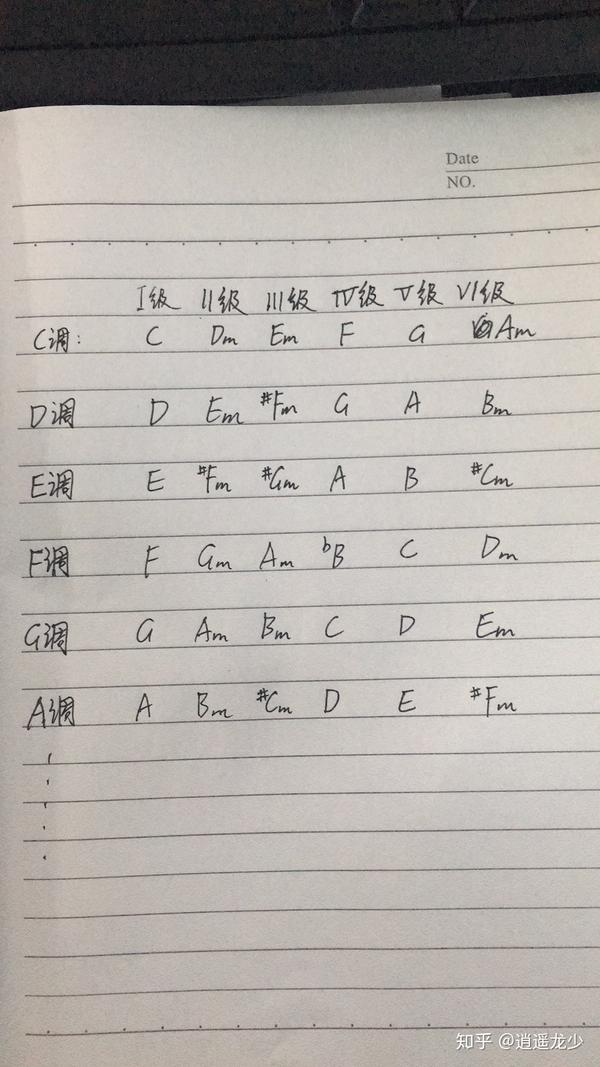 Date
NO.
I级 II级 III级 IV级 V级 VI级
C调: C Dm Em F G Am
D调 D Em #Fm G A Bm
E调 E #Fm #Gm A B #Cm
F调 F Gm Am bB C Dm
G调 G Am Bm C D Em
A调 A Bm #Cm D E #Fm
知乎 @逍遥龙少